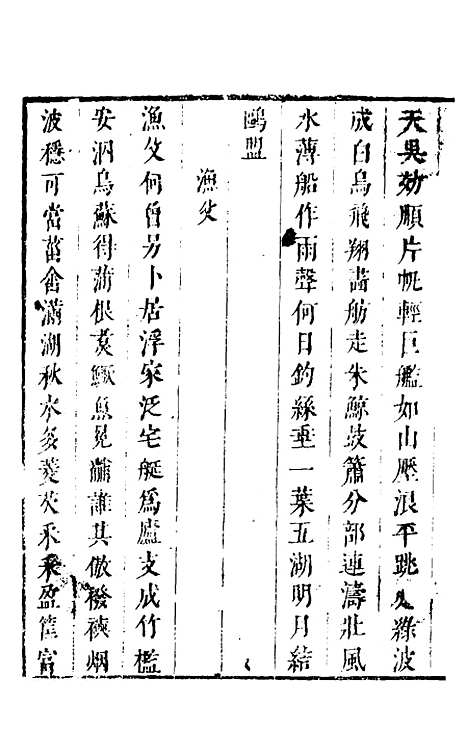 天吳効順片帆輕巨艦如山壓浪平跳入綠波
成白鳥飛翔畵舫走朱鯨鼓簫分部連濤壯風
水薄船作雨聲何日釣絲垂一葉五湖明月結
鷗盟
漁父
漁父何曾另卜居浮家泛宅艇爲廬支成竹檻
安泅鳥蘇得蒲根煑鱖魚晃誰其倣襏襫烟
波穩可當菑畬瀟湖秋水多菱芡釆釆盈筐富